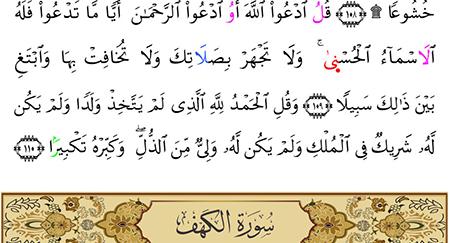 خُشُوعًا ۩ ﴿١٠٨﴾ قُلُ ادْعُوا۟ اللَّهَ أَوُ ادْعُوا۟ الرَّحْمَٰنَ أَيًّا مَّا تَدْعُوا۟ فَلَهُ
الَاسْمَآءُ الْحُسْنىٰ ۚ وَلَا تَجْهَرْ بِصَلَاتِكَ وَلَا تُخَافِتْ بِهَا وَابْتَغِ
بَيْنَ ذَٰلِكَ سَبِيلًا ﴿١٠٩﴾ وَقُلِ الْحَمْدُ لِلَّهِ الَّذِى لَمْ يَتَّخِذْ وَلَدًا وَلَمْ يَكُن
لَّهُۥ شَرِيكٌ فِى الْمُلْكِ وَلَمْ يَكُن لَّهُۥ وَلِىٌّ مِّنَ الذُّلِّ ۖ وَكَبِّرْهُ تَكْبِيرًا ﴿١١٠﴾
سُورَةُ الكَهْفِ